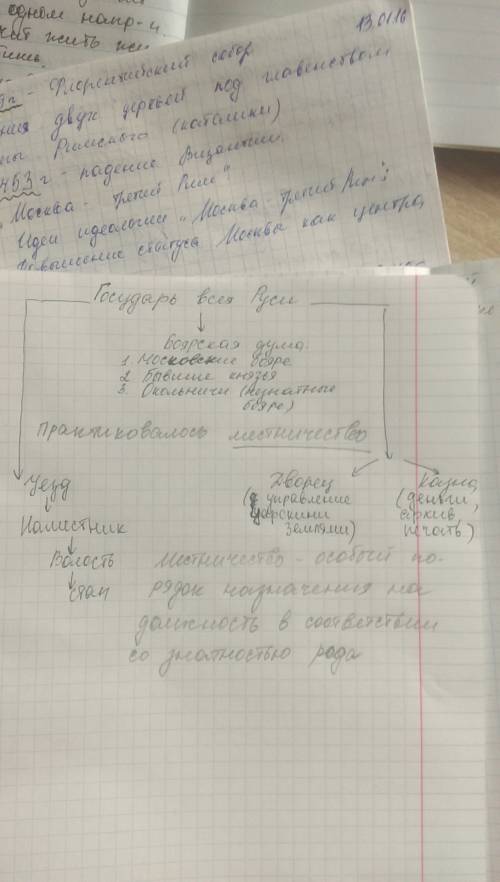 одном напр-и
13.01.16
Флорентийский собор.
двух церквей под главенством
Римского (католики)
453 г - падение Византии.
"Москва - третий Рим"
Идеи идеологии "Москва - третий Рим":
Повышение статуса Москвы как центра
Государь всея Руси
Боярская дума.
1. Московские бояре
2. Бывшие князья
3. Окольничи (незнатные
бояре)
Практиковалось местничество
Уезд
Наместник
Волость
стан
Дворец
(управление
царскими
землями)
Казна
(деньги,
архив,
печать)
Местничество - особый по-
рядок назначения на
должность в соответствии
со знатностью рода